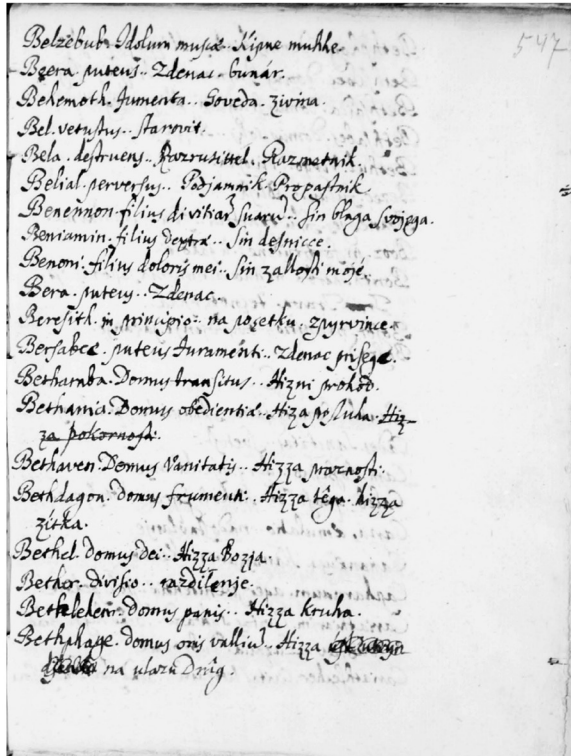 547
Belzebub. Idolum muscæ. Kipne muhhe.
Beera. puteus. Zdenac. bunár.
Behemoth. Jumenta. Goveda. zivina.
Bel. vetustus. starovit.
Bela. destruens. Razrusittel. Razmetnik.
Belial. perversus. Podjamnik. Propastnik
Benennon. filius divitiar suaru. Sin blaga svojega.
Beniamin. filius dextræ. Sin desnicce.
Benoni. filius doloris mei. Sin zallosti mojé.
Bera. puteus. Zdenac.
Beresith. in principio. na pozetku. zpyrvince.
Bersabeę. puteus Juramenti. Zdenac prisege.
Betharaba. Domus transitus. Hizni prohod.
Bethania. Domus obedientiæ. Hizza posluha. Hiz-
za pokornosti.
Bethaven. Domus Vanitatis. Hizza praznosti.
Bethdagon. domus frumenti. Hizza téga. hizza
zitka.
Bethel. domus dei. Hizza Bozja.
Bethor. divisio. razdilenje.
Bethlehem. domus panis. Hizza kruha.
Bethphage. domus oris valliu. Hizza
na ulazu Drúg.